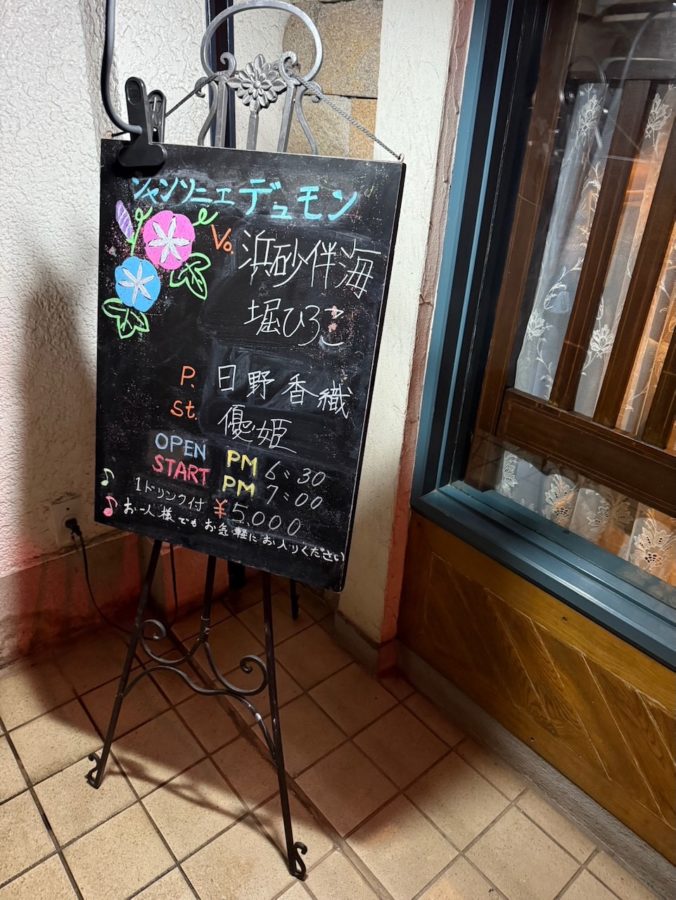 シャンソニエ デュモン
Vo. 浜砂伴海
堀ひろこ
P. 日野香織
St. 優姫
OPEN PM 6:30
START PM 7:00
1ドリンク付 ¥5,000
お一人様でもお気軽にお入りください